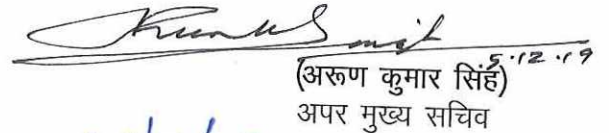 5.12.19
(अरूण कुमार सिंह)
अपर मुख्य सचिव